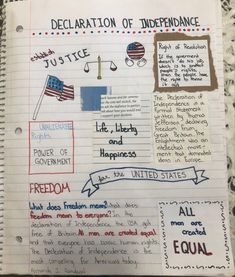 DECLARATION OF INDEPENDANCE
establish
JUSTICE
Right of Revolution
If the government
doesn't do his job
which is to protect
people's rights,
then the people have
the right to throw
it out
The Declaration of
Independence is a
formal statement
written by Thomas
Jefferson declaring
Freedom from
Great Britain. The
Enlightenment was an
intellectual move-
ment that dominated
ideas in Europe.
UNALIENABLE
Rights
POWER OF
GOVERNMENT
Life, Liberty
and
Happiness
for the UNITED STATES
FREEDOM
What does Freedom mean? What does
freedom mean to everyone? In the
declaration of Independence the USA
All men are created equal
and that everyone has some human rights.
The Declaration of Independence is the
most
ALL
men are
created
EQUAL